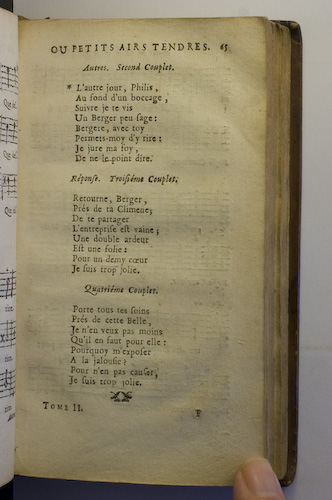 OU PETITS AIRS TENDRES. 65
Autres. Second Couplet.
* L'autre jour, Philis,
Au fond d'un boccage,
Suivre je te vis
Un Berger peu sage:
Bergere, avec toy
Permets-moy d'y rire:
Je jure ma foy,
De ne le point dire.
Réponse. Troisiéme Couplet.
Retourne, Berger,
Prés de ta Climene;
De te partager
L'entreprise est vaine;
Une double ardeur
Est une folie:
Pour un demy cœur
Je suis trop jolie.
Quatriéme Couplet.
Porte tous tes soins
Prés de cette Belle,
Je n'en veux pas moins
Qu'il en faut pour elle:
Pourquoy m'exposer
A la jalousie?
Pour n'en pas causer,
Je suis trop jolie.
TOME II. F